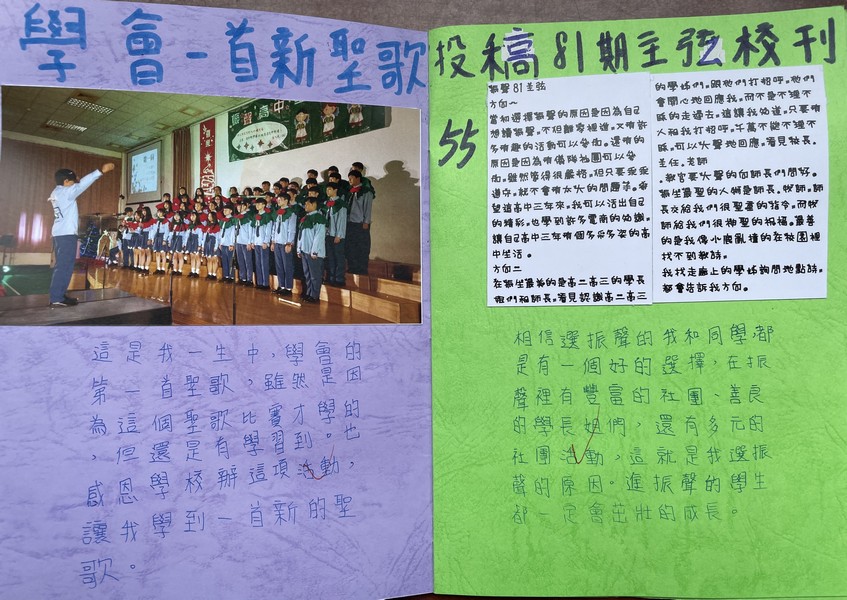 學會一首新聖歌
這是我一生中,學會的
第一首聖歌,雖然是因
為這個聖歌比賽才學的
,但還是有學習到。也
感恩學校辦這項活動,
讓我學到一首新的聖
歌。
投稿81期主弦校刊
55
振聲81主弦
方向一
當初選擇振聲的原因是因為自己
想讀振聲,不但離家裡近,又有許
多有趣的活動可以參加,還有的
原因是因為有儀隊社團可以參
加,雖然管得很嚴格,但只要乖乖
遵守,就不會有太大的問題了。希
望這高中三年來,我可以活出自己
的精彩,也學到許多電商的知識,
讓自己高中三年有個多采多姿的高
中生活。
方向二
在振聲最美的是高二高三的學長
姐們和師長,看見認識高二高三
的學姊們,跟祂們打招呼,祂們
會開心地回應我,而不是不理不
睬的走過去,這讓我知道,只要有
人和我打招呼,千萬不能不理不
睬,可以大聲地回應,看見校長、
主任、老師
、教官要大聲的向師長們問好。
振聲最聖的人物是師長、牧師,師
長交給我們很聖書的指令,而牧
師給我們很神聖的祝福,最善
的是我像小鹿亂撞的在校園裡
找不到教師,
我找走廊上的學姊詢問地點時,
都會告訴我方向。
相信選振聲的我和同學,都
是有一個好的選擇,在振
聲裡有豐富的社團、善良
的學長姐們,還有多元的
社團活動,這就是我選振
聲的原因。進振聲的學生
都一定會茁壯的成長。